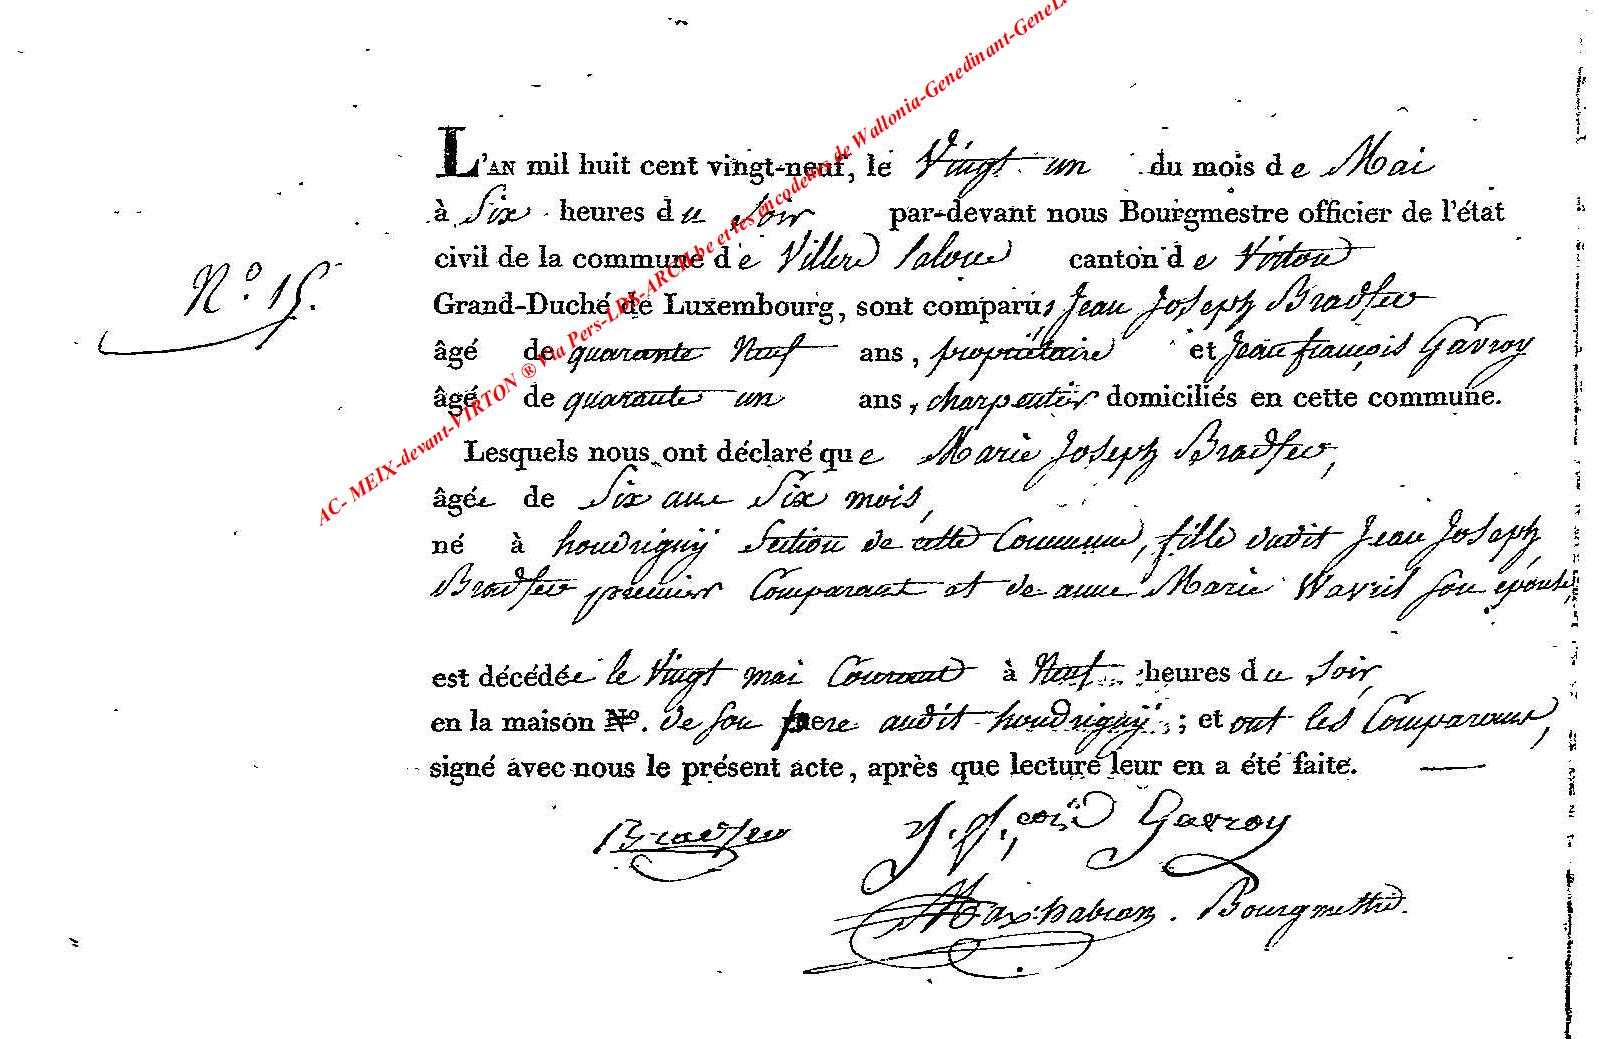 L'AN mil huit cent vingt-neuf, le Vingt un du mois de Mai
à Six heures du Soir par-devant nous Bourgmestre officier de l'état
civil de la commune de Villers Laloue canton de Virton
N.º 15.
Grand-Duché de Luxembourg, sont comparus Jean Joseph Bradfer
âgé de quarante Neuf ans, propriétaire et Jean françois Gavroy
âgé de quarante un ans, charpentier domiciliés en cette commune.
Lesquels nous ont déclaré que Marie Joseph Bradfer,
âgée de Six ans Six mois,
né à houdrigny Section de cette Commune, fille dudit Jean Joseph
Bradfer premier Comparant et de anne Marie Wavril son épouse,
est décédée le Vingt mai Courant à Neuf heures du Soir,
en la maison Nº. de son pere audit houdrigny ; et ont les Comparans,
signé avec nous le présent acte, après que lecture leur en a été faite.
Bradfer J. f.çois Gavroy
Bourgmettre.
AC- MEIX-devant-VIRTON ® Via Pers-LDS-ARCH.be et les encodeurs de Wallonia-Genedinant-GeneL